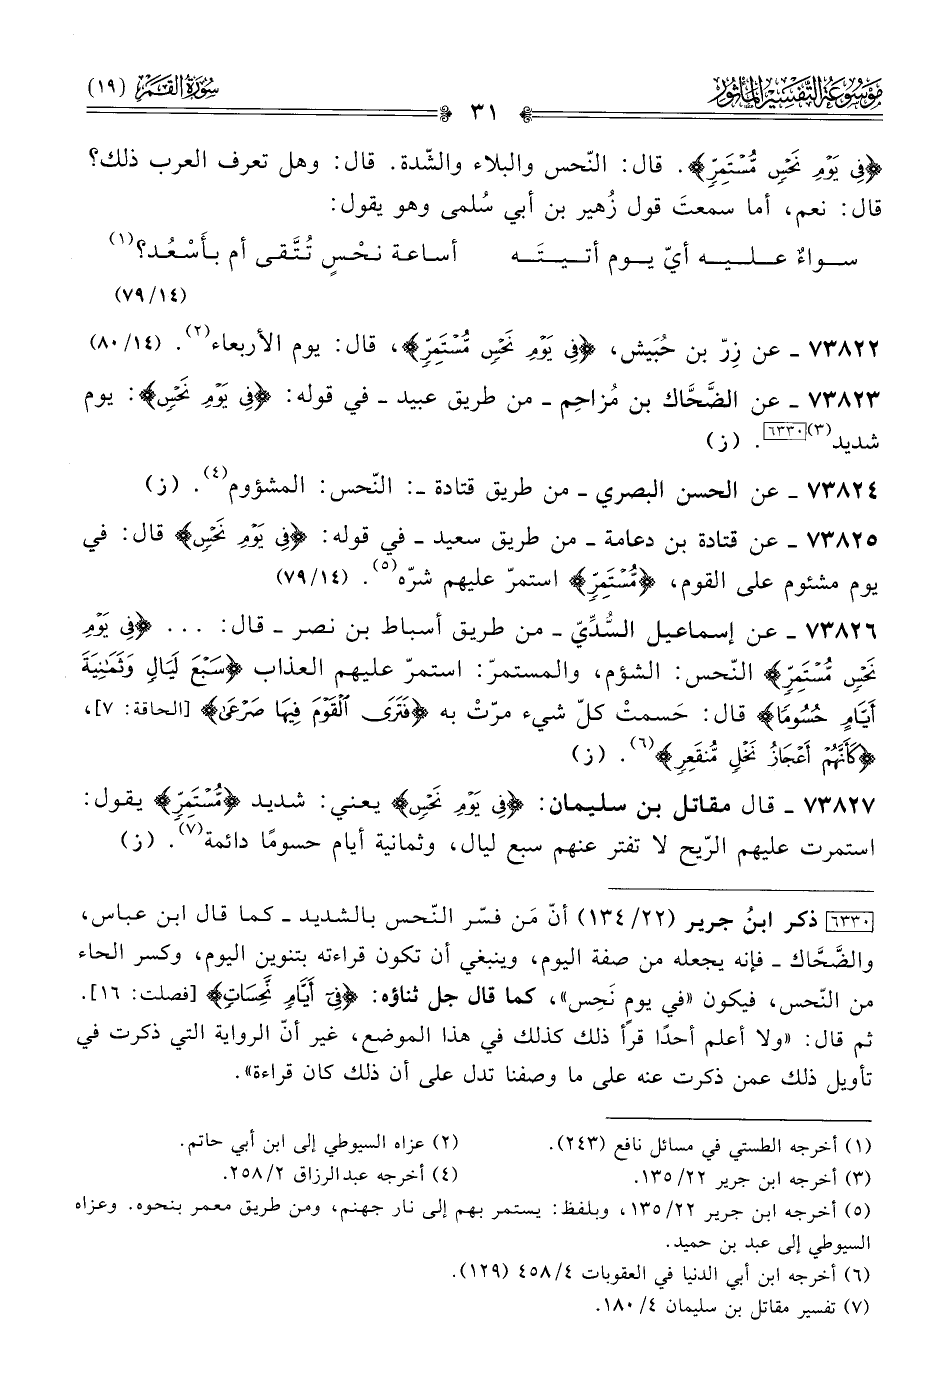 مَوْسُوعَة التَّفْسِير المَأثُور
٣١
سُورَةُ القَمَر (١٩)
﴿فِي يَوْمِ نَحْسٍ مُّسْتَمِرٍّ﴾. قال: النّحس والبلاء والشّدة. قال: وهل تعرف العرب ذلك؟
قال: نعم، أما سمعتَ قول زُهير بن أبي سُلمى وهو يقول:
سـواءٌ عـلـيـه أيّ يـوم أتـيـتَـه أساعة نحْسٍ تُتَّقى أم بأَسْعُد؟(١)
(١٤/ ٧٩)
٧٣٨٢٢ ـ عن زِرّ بن حُبَيش، ﴿فِي يَوْمِ نَحْسٍ مُّسْتَمِرٍّ﴾، قال: يوم الأربعاء(٢). (١٤/ ٨٠)
٧٣٨٢٣ ـ عن الضَّحَّاك بن مُزاحِم ـ من طريق عبيد ـ في قوله: ﴿فِي يَوْمِ نَحْسٍ﴾: يوم
شديد(٣)[٦٣٣٠]. (ز)
٧٣٨٢٤ ـ عن الحسن البصري ـ من طريق قتادة ـ: النّحس: المشؤوم(٤). (ز)
٧٣٨٢٥ ـ عن قتادة بن دعامة ـ من طريق سعيد ـ في قوله: ﴿فِي يَوْمِ نَحْسٍ﴾ قال: في
يوم مشئوم على القوم، ﴿مُّسْتَمِرٍّ﴾ استمرّ عليهم شرّه(٥). (١٤/ ٧٩)
٧٣٨٢٦ ـ عن إسماعيل السُّدِّيّ ـ من طريق أسباط بن نصر ـ قال: ... ﴿فِي يَوْمِ
نَحْسٍ مُّسْتَمِرٍّ﴾ النّحس: الشؤم، والمستمرّ: استمرّ عليهم العذاب ﴿سَبْعَ لَيَالٍ وَثَمَٰنِيَةَ
أَيَّامٍ حُسُومًا﴾ قال: حَسمتْ كلّ شيء مرّتْ به ﴿فَتَرَى ٱلْقَوْمَ فِيهَا صَرْعَىٰ﴾ [الحاقة: ٧]،
﴿كَأَنَّهُمْ أَعْجَازُ نَخْلٍ مُّنقَعِرٍ﴾(٦). (ز)
٧٣٨٢٧ ـ قال مقاتل بن سليمان: ﴿فِي يَوْمِ نَحْسٍ﴾ يعني: شديد ﴿مُّسْتَمِرٍّ﴾ يقول:
استمرت عليهم الرّيح لا تفتر عنهم سبع ليال، وثمانية أيام حسومًا دائمة(٧). (ز)
[٦٣٣٠] ذكر ابنُ جرير (٢٢/ ١٣٤) أنّ مَن فسّر النّحس بالشديد ـ كما قال ابن عباس،
والضَّحَّاك ـ فإنه يجعله من صفة اليوم، وينبغي أن تكون قراءته بتنوين اليوم، وكسر الحاء
من النّحس، فيكون «في يومٍ نَحِس»، كما قال جل ثناؤه: ﴿فِيٓ أَيَّامٍ نَّحِسَاتٍ﴾ [فصلت: ١٦].
ثم قال: «ولا أعلم أحدًا قرأ ذلك كذلك في هذا الموضع، غير أنّ الرواية التي ذكرت في
تأويل ذلك عمن ذكرت عنه على ما وصفنا تدل على أن ذلك كان قراءة».
(١) أخرجه الطستي في مسائل نافع (٢٤٣). (٢) عزاه السيوطي إلى ابن أبي حاتم.
(٣) أخرجه ابن جرير ٢٢/ ١٣٥. (٤) أخرجه عبدالرزاق ٢/ ٢٥٨.
(٥) أخرجه ابن جرير ٢٢/ ١٣٥، وبلفظ: يستمر بهم إلى نار جهنم، ومن طريق معمر بنحوه. وعزاه
السيوطي إلى عبد بن حميد.
(٦) أخرجه ابن أبي الدنيا في العقوبات ٤/ ٤٥٨ (١٢٩).
(٧) تفسير مقاتل بن سليمان ٤/ ١٨٠.